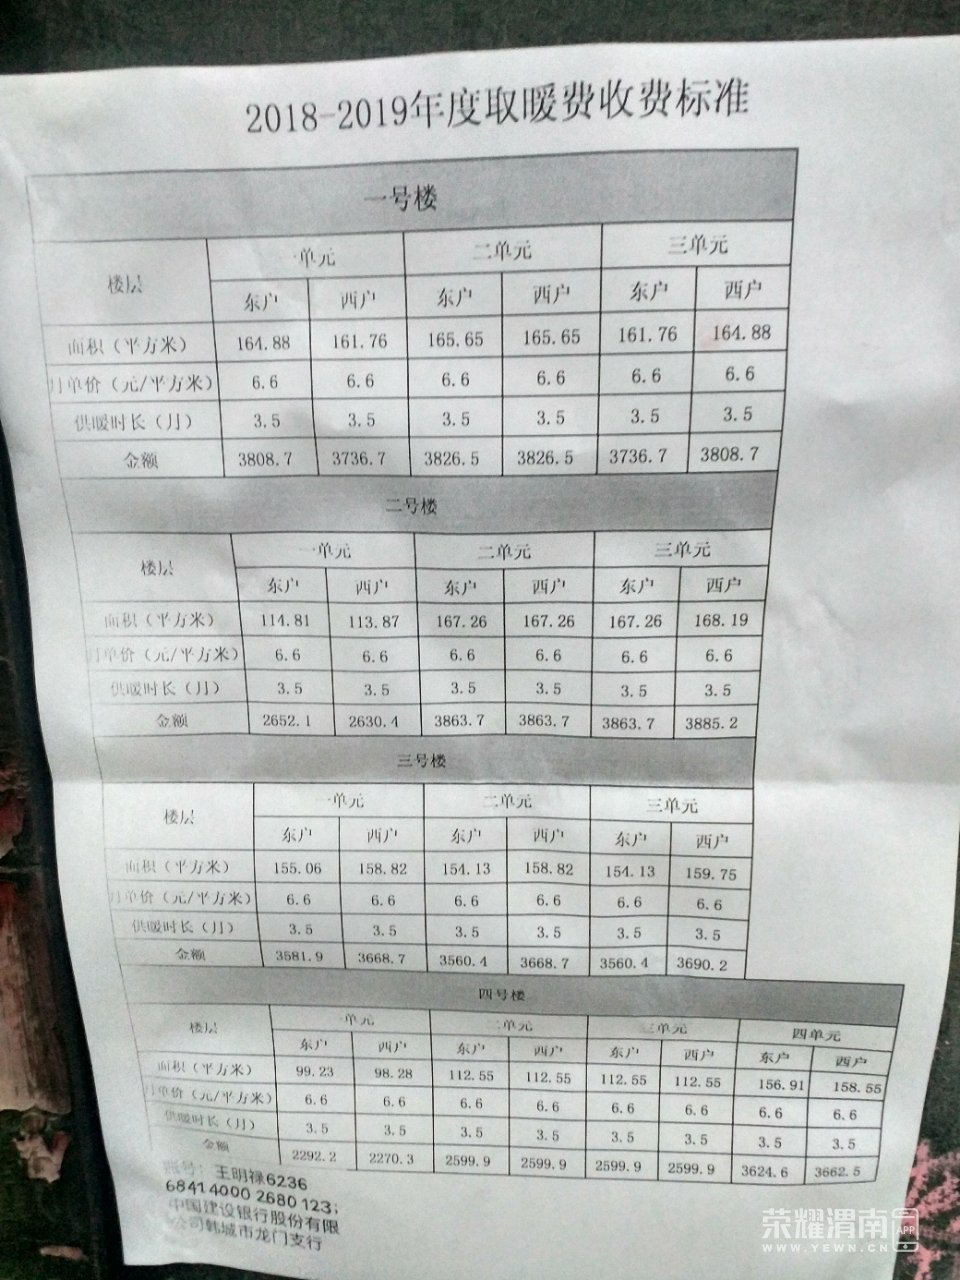 2018-2019年度取暖费收费标准
一号楼
楼层 一单元 二单元 三单元
东户 西户 东户 西户 东户 西户
面积（平方米） 164.88 161.76 165.65 165.65 161.76 164.88
月单价（元/平方米） 6.6 6.6 6.6 6.6 6.6 6.6
供暖时长（月） 3.5 3.5 3.5 3.5 3.5 3.5
金额 3808.7 3736.7 3826.5 3826.5 3736.7 3808.7
二号楼
楼层 一单元 二单元 三单元
东户 西户 东户 西户 东户 西户
面积（平方米） 114.81 113.87 167.26 167.26 167.26 168.19
月单价（元/平方米） 6.6 6.6 6.6 6.6 6.6 6.6
供暖时长（月） 3.5 3.5 3.5 3.5 3.5 3.5
金额 2652.1 2630.4 3863.7 3863.7 3863.7 3885.2
三号楼
楼层 一单元 二单元 三单元
东户 西户 东户 西户 东户 西户
面积（平方米） 155.06 158.82 154.13 158.82 154.13 159.75
月单价（元/平方米） 6.6 6.6 6.6 6.6 6.6 6.6
供暖时长（月） 3.5 3.5 3.5 3.5 3.5 3.5
金额 3581.9 3668.7 3560.4 3668.7 3560.4 3690.2
四号楼
楼层 一单元 二单元 三单元 四单元
东户 西户 东户 西户 东户 西户 东户 西户
面积（平方米） 99.23 98.28 112.55 112.55 112.55 112.55 156.91 158.55
月单价（元/平方米） 6.6 6.6 6.6 6.6 6.6 6.6 6.6 6.6
供暖时长（月） 3.5 3.5 3.5 3.5 3.5 3.5 3.5 3.5
金额 2292.2 2270.3 2599.9 2599.9 2599.9 2599.9 3624.6 3662.5
账号：王明禄6236
6841 4000 2680 123；
中国建设银行股份有限
公司韩城市龙门支行
荣耀渭南 APP
WWW.YEWN.CN